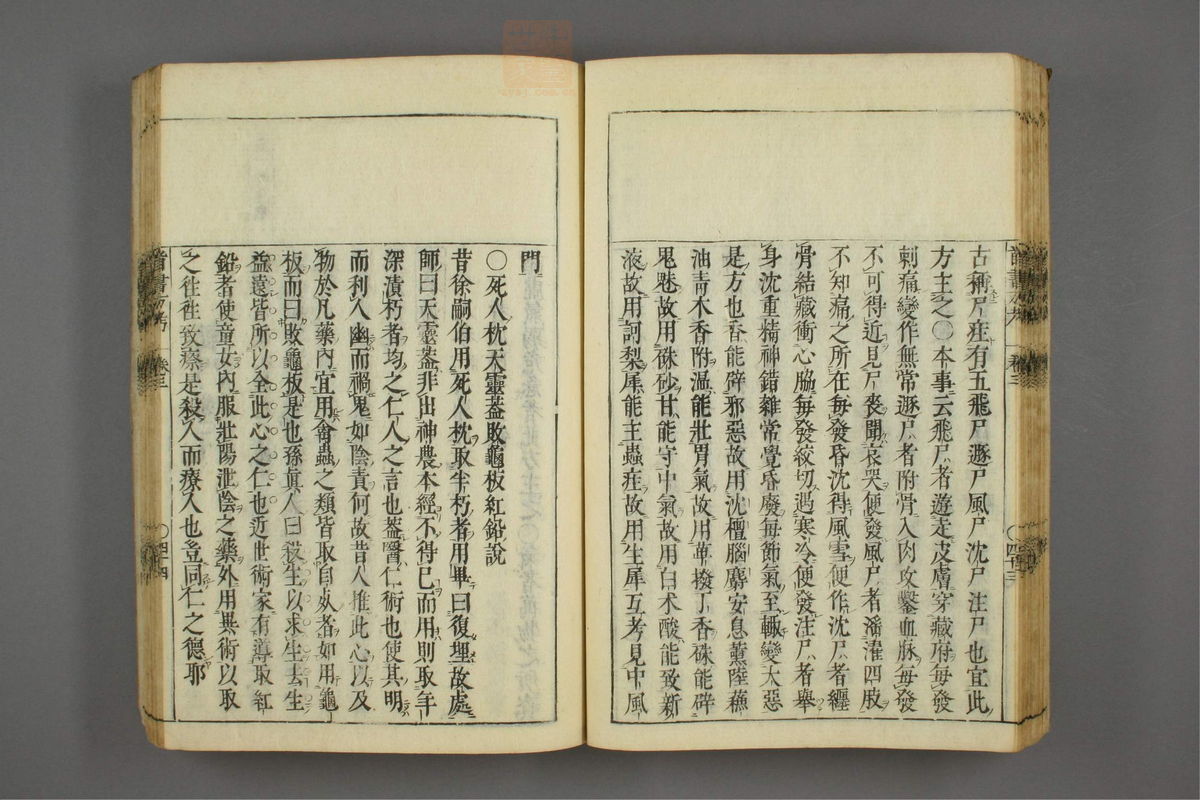 古稱尸疰有五飛尸遯尸風尸沈尸注尸也宜此
方主之〇本事云飛尸者遊走皮膚穿藏府每發
刺痛變作無常遯尸者附骨入肉攻鑿血脉每發
不可得近見尸喪聞哀哭便發風尸者淫濯四肢
不知痛之所在每發昏沈得風雪便作沈尸者纏
骨結藏衝心脇每發絞切遇寒冷便發注尸者舉
身沈重精神錯雜常覺昏廢每節氣至輙變大惡
是方也香能辟邪惡故用沈檀腦麝安息薰陸蘇
油青木香附溫能壯胃氣故用蓽撥丁香硃能辟
鬼魅故用硃砂甘能守中氣故用白术酸能致新
液故用訶梨犀能主蟲疰故用生犀互考見中風
門
〇死人枕天靈葢敗龜板紅鉛說
昔徐嗣伯用死人枕取半朽者用畢曰復埋故處
師曰天靈葢非出神農本經不得已而用則取年
深漬朽者均之仁人之言也葢醫仁術也使其明
而利人幽而禍鬼如陰責何故昔人推此心以及
物於凡藥內宜用禽蟲之類皆取自死者如用龜
板而曰敗龜板是也孫眞人曰殺生以求生去生
益遠皆所以全此心之仁也近世術家有導取紅
鉛者使童女內服壯陽泄陰之藥外用異術以取
之徃徃致瘵是殺人而療人也豈同仁之德耶
首書方考 卷三 〇四十三
首書方考 卷三 〇四十四